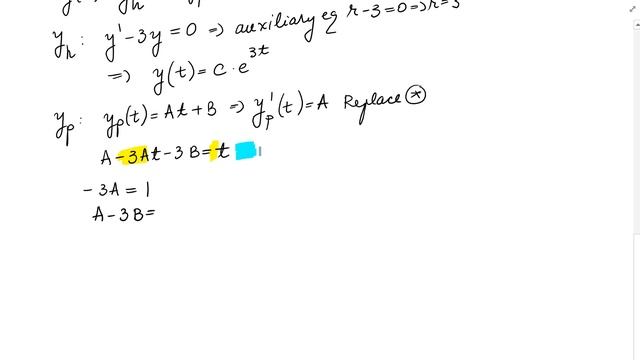 y_h : y' - 3y = 0 => auxiliary eq r - 3 = 0 => r = 3
=> y(t) = C · e^{3t}
y_p : y_p(t) = At + B => y_p'(t) = A Replace ⊛
A - 3At - 3B = t
- 3A = 1
A - 3B =